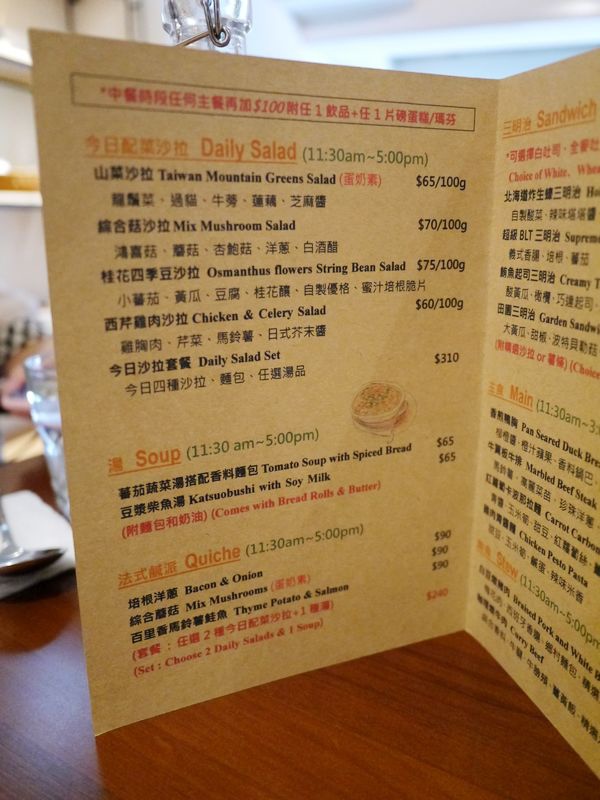 *中餐時段任何主餐再加$100附任1飲品+任1片磅蛋糕/瑪芬
今日配菜沙拉 Daily Salad (11:30am~5:00pm)
山菜沙拉 Taiwan Mountain Greens Salad (蛋奶素) $65/100g
龍鬚菜、過貓、牛蒡、蓮藕、芝麻醬
綜合菇沙拉 Mix Mushroom Salad $70/100g
鴻喜菇、蘑菇、杏鮑菇、洋蔥、白酒醋
桂花四季豆沙拉 Osmanthus flowers String Bean Salad $75/100g
小蕃茄、黃瓜、豆腐、桂花釀、自製優格、蜜汁培根脆片
西芹雞肉沙拉 Chicken & Celery Salad $60/100g
雞胸肉、芹菜、馬鈴薯、日式芥末醬
今日沙拉套餐 Daily Salad Set $310
今日四種沙拉、麵包、任選湯品
湯 Soup (11:30 am~5:00pm)
蕃茄蔬菜湯搭配香料麵包 Tomato Soup with Spiced Bread $65
豆漿柴魚湯 Katsuobushi with Soy Milk $65
(附麵包和奶油) (Comes with Bread Rolls & Butter)
法式鹹派 Quiche (11:30am~5:00pm)
培根洋蔥 Bacon & Onion $90
綜合蘑菇 Mix Mushrooms (蛋奶素) $90
百里香馬鈴薯鮭魚 Thyme Potato & Salmon $90
(套餐：任選2種今日配菜沙拉+1種湯) $240
(Set : Choose 2 Daily Salads & 1 Soup)
三明治 Sandwich
*可選擇白吐司、全麥吐
Choice of White, Whea
北海道炸生蠔三明治 Ho
自製酸菜、辣味塔塔醬
超級 BLT 三明治 Suprem
義式香腸、培根、蕃茄
鮪魚起司三明治 Creamy T
酸黃瓜、橄欖、巧達起司
田園三明治 Garden Sandwi
大黃瓜、甜椒、波特貝勒菇
(附精選沙拉 or 薯條) (Choice
主食 Main (11:30am~3:
香煎鴨胸 Pan Seared Duck Brea
Marbled Beef Steak
Carrot Carbon
Chicken Pesto Pasta
Stew (11:30am~5:00pm
Braised Pork and White B
Curry Beef